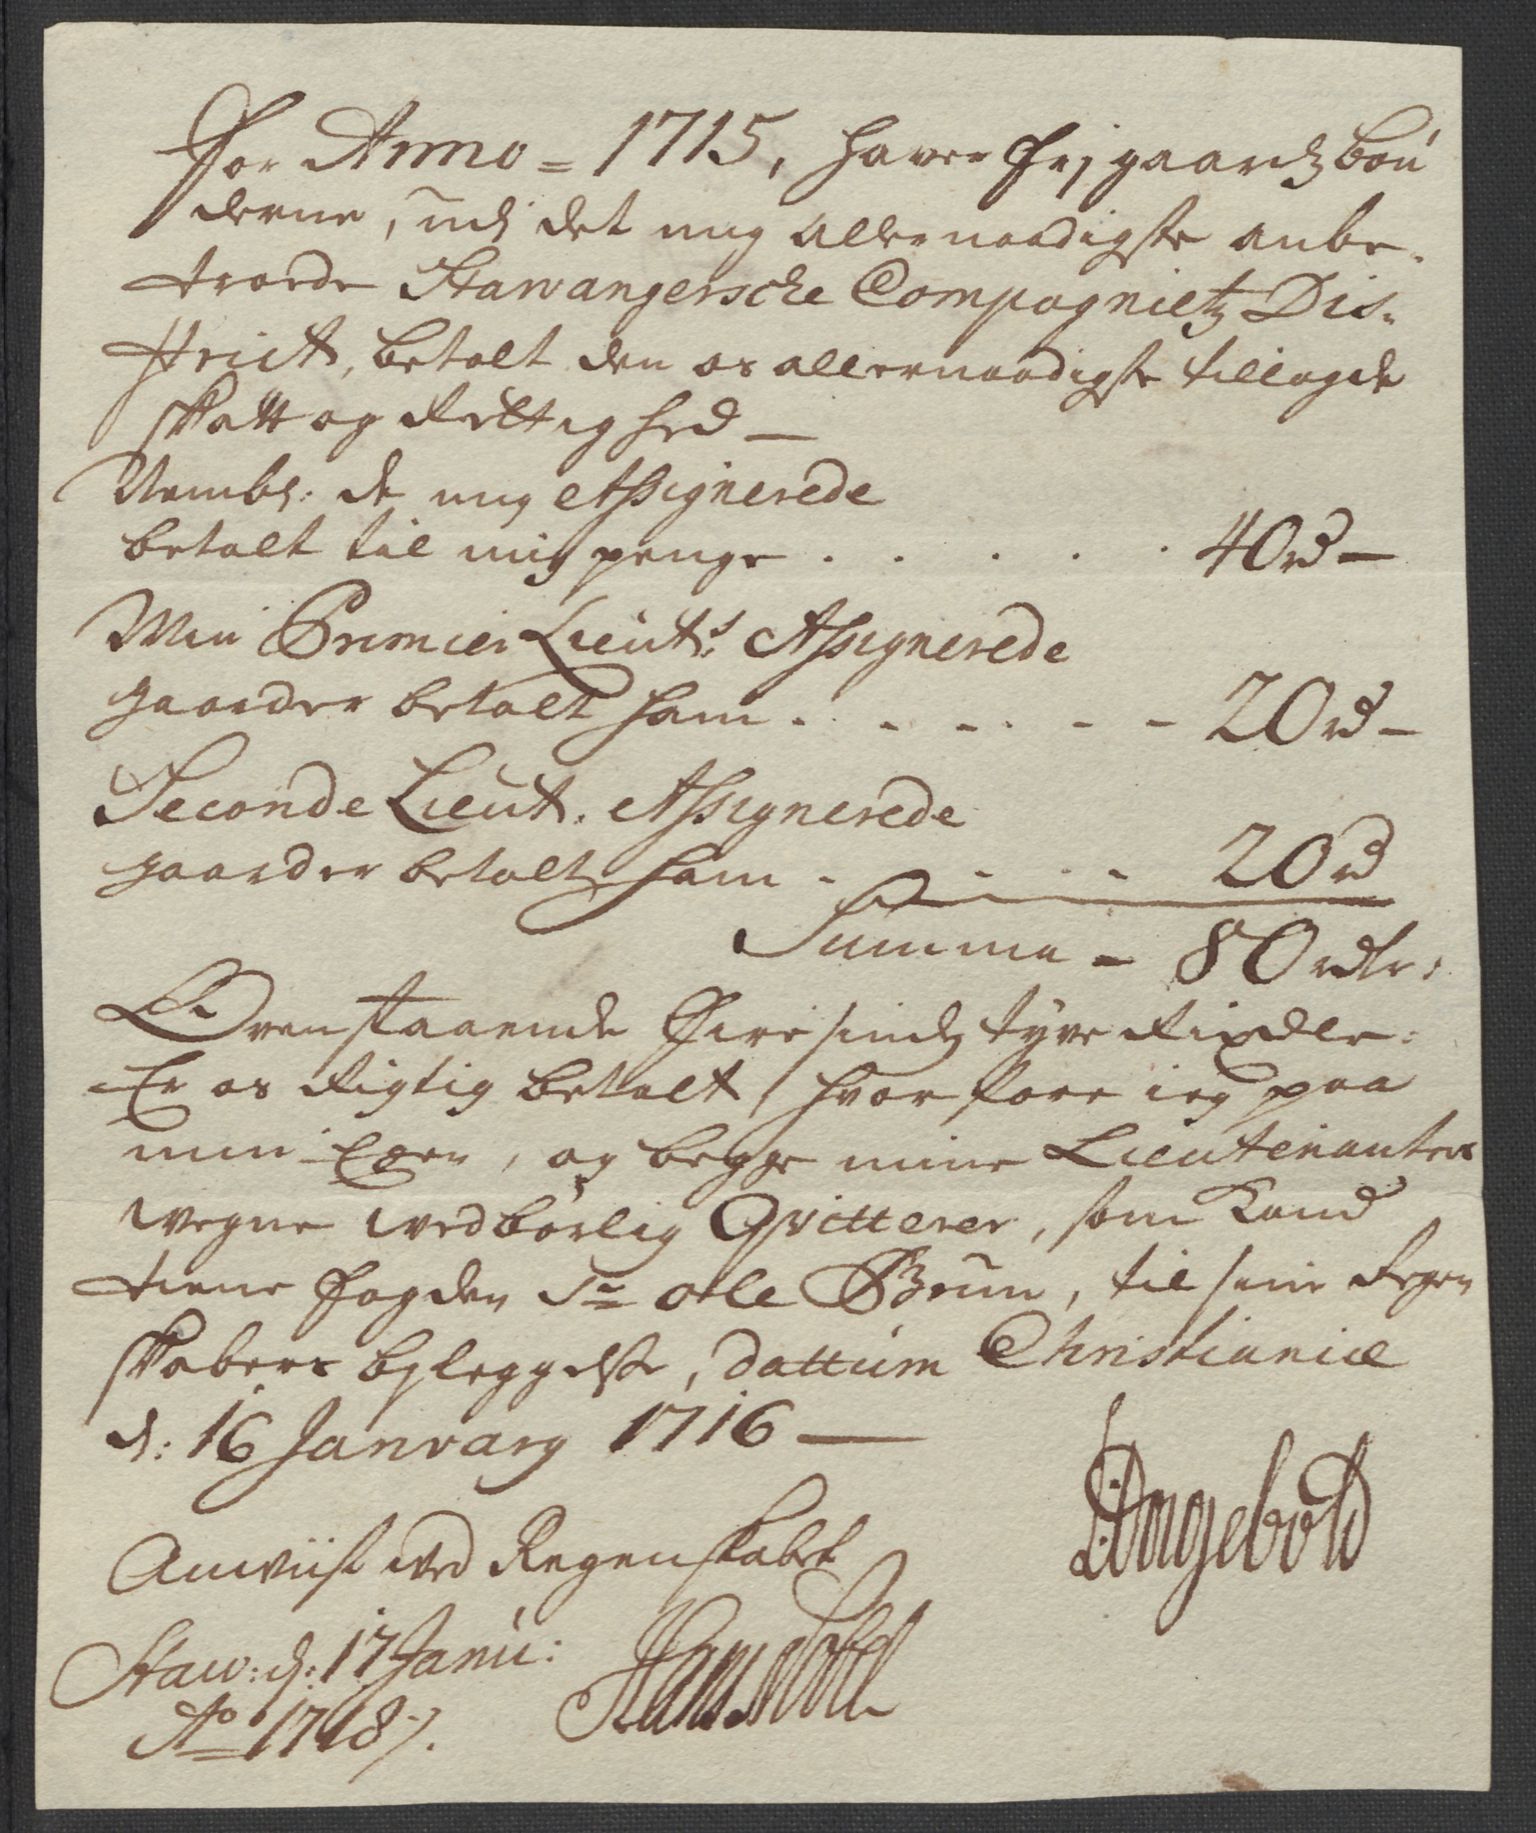 For Anno = 1715, haver Frj gaardz bøn
derne, udj det mig allernaadigste anbe-
troede Stawangersche Compagnietz Dis-
strict, betalt den os allernaadigste tillagde
skatt og Rettighed —
Nembl: de mig Assignerede
betalt til mig penge . . . . . 40 rd —
Min Premier Lieut:s Assignerede
gaarder betalt ham . . . . . 20 rd —
Seconde Lieut: Assignerede
gaarder betalt ham . . . . 20 rd
Summa — 80 rdlr:
Ovenstaaende Firesindz tyve Rixdlr:
Er os Rigtig betalt, hvorfore ieg paa
min Egen, og begge mine Lieutenanters
wegne wedbørlig Qvitterer, som Kand
tiene Fogden Sr Ole Brun, til sine Regen
skabers bjleggelse, dattum Christianiæ
d: 16 Janvarij 1716 —
Angebold
Anviist ved Regenskabet
Staw: d: 17 Janu:
Ao 1718 /.
Hans